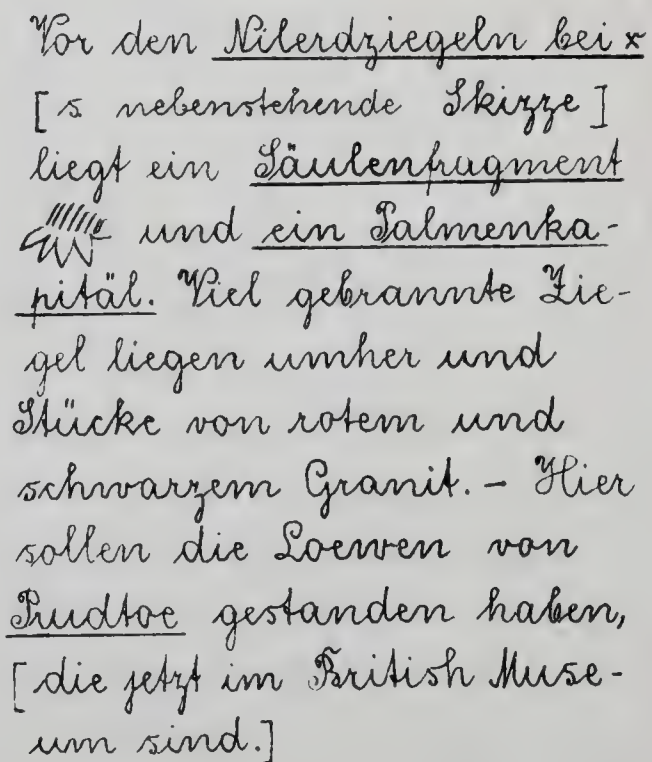 Vor den Nilerdziegeln bei x
[s nebenstehende Skizze]
liegt ein Säulenfragment
und ein Palmenka-
pitäl. Viel gebrannte Zie-
gel liegen umher und
Stücke von rotem und
schwarzem Granit. - Hier
sollen die Loewen von
Prudtoe gestanden haben,
[die jetzt im British Muse-
um sind.]